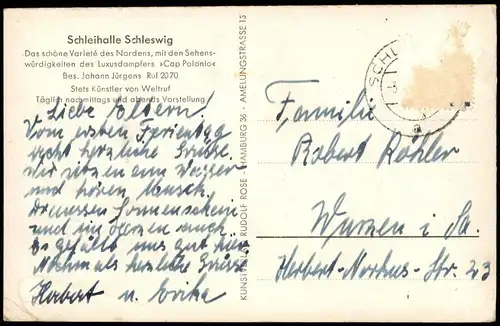 Schleihalle Schleswig
Das schöne Varieté des Nordens, mit den Sehens-
würdigkeiten des Luxusdampfers »Cap Polonio«
Bes. Johann Jürgens · Ruf 2070
Stets Künstler von Weltruf
Täglich nachmittags und abends Vorstellung
Liebe Eltern!
Vom ersten Ferientag
recht herzliche Grüße.
Wir sitzen am Wasser
und hören Musik.
Draussen Sonnenschein
und im Herzen auch.
Es gefällt uns gut hier.
Nochmals herzliche Grüsse
Herbert u. Erika
RUDOLF ROSE · HAMBURG 36 · AMELUNGSTRASSE 15
SCHL
Familie
Robert Köhler
Wurzen i. Sa.
Herbert-Norkus-Str. 23